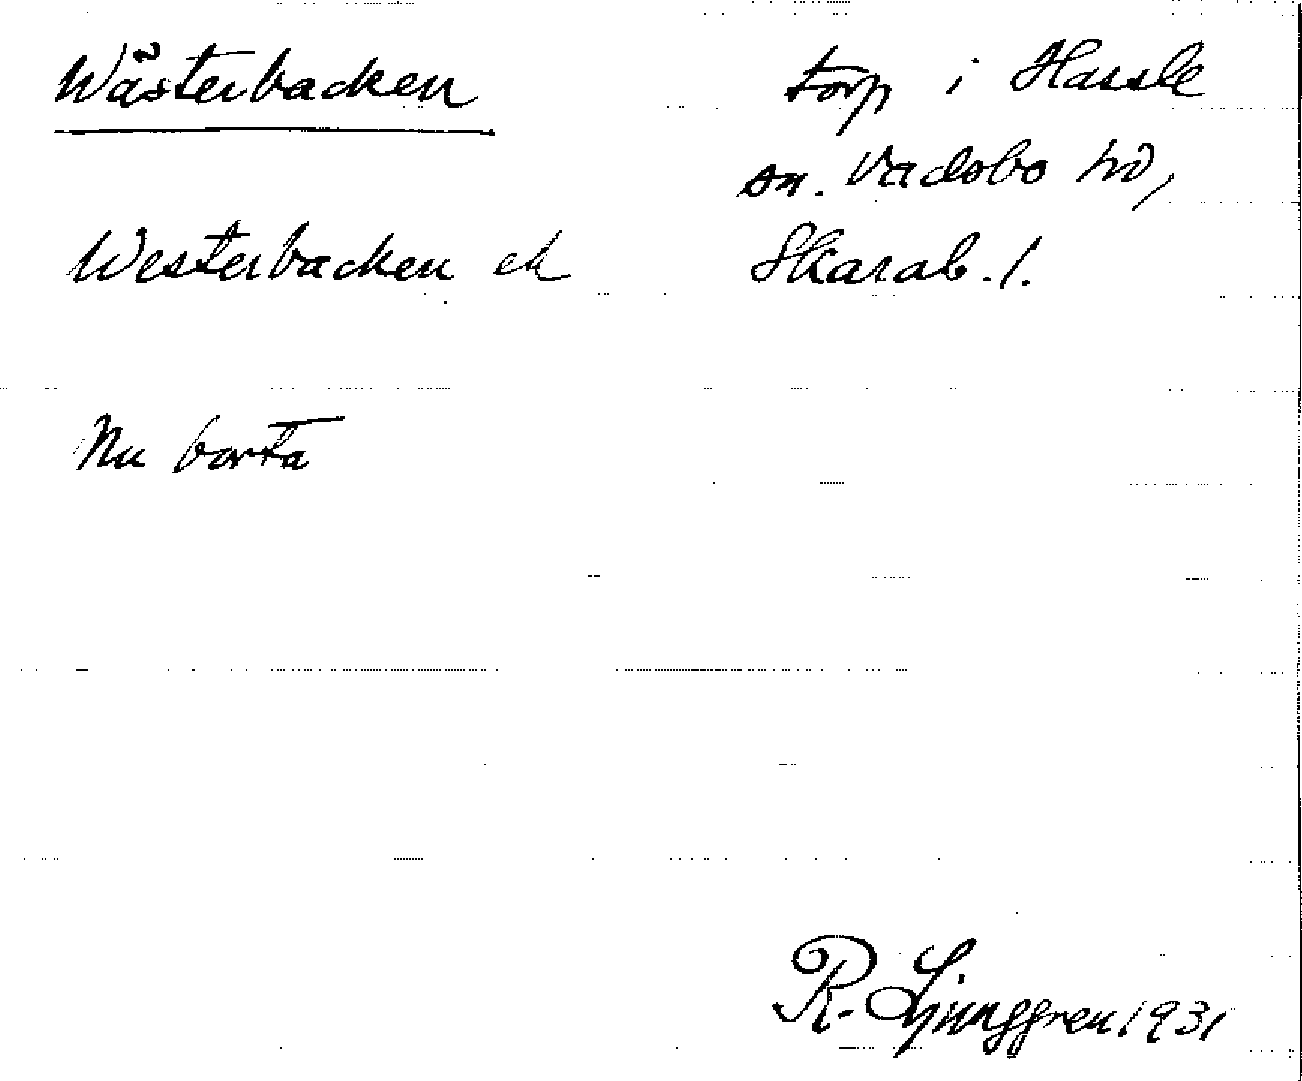 Wästerbacken
torp i Hassle
sn. Vadsbo hd,
Westerbacken ek
Skarab. l.
Nu borta
R. Ljunggren 1931